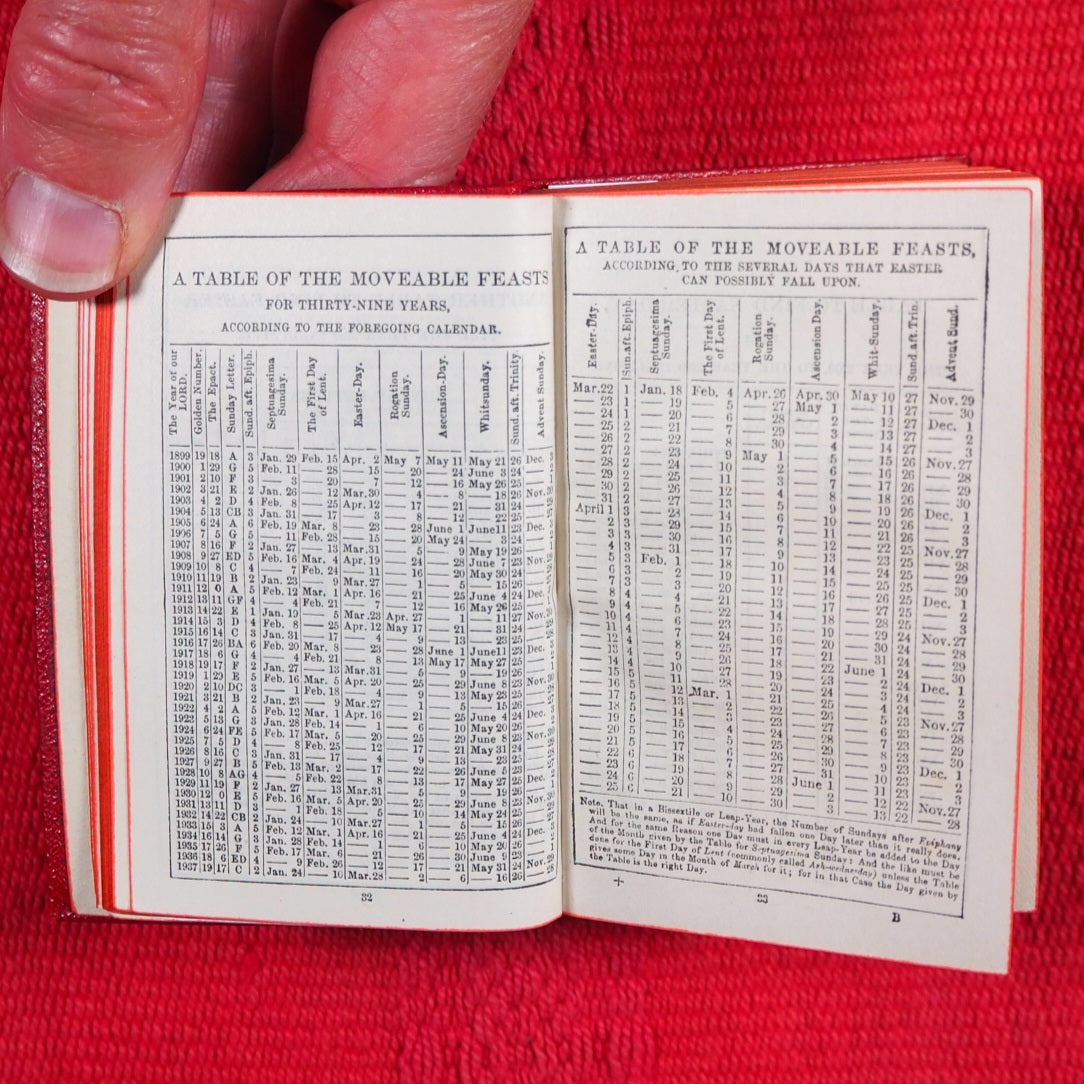 A TABLE OF THE MOVEABLE FEASTS
FOR THIRTY-NINE YEARS,
ACCORDING TO THE FOREGOING CALENDAR.
The Year of our LORD. Golden Number. The Epact. Sunday Letter. Sund. aft. Epiph. Septuagesima Sunday. The First Day of Lent. Easter-Day. Rogation Sunday. Ascension-Day. Whitsunday. Sund. aft. Trinity. Advent Sunday.
1899 19 18 A 3 Jan. 29 Feb. 15 Apr. 2 May 7 May 11 May 21 26 Dec. 3
1900 1 29 G 5 Feb. 11 — 28 — 15 — 20 — 24 June 3 24 — 2
1901 2 10 F 3 — 3 — 20 — 7 — 12 — 16 May 26 25 — 1
1902 3 21 E 2 Jan. 26 — 12 Mar. 30 — 4 — 8 — 18 26 Nov. 30
1903 4 2 D 4 Feb. 8 — 25 Apr. 12 — 17 — 21 — 31 24 — 29
1904 5 13 CB 3 Jan. 31 — 17 — 3 — 8 — 12 — 22 25 — 27
1905 6 24 A 6 Feb. 19 Mar. 8 — 23 — 28 June 1 June 11 23 Dec. 3
1906 7 5 G 5 — 11 Feb. 28 — 15 — 20 May 24 — 3 24 — 2
1907 8 16 F 2 Jan. 27 — 13 Mar. 31 — 5 — 9 May 19 26 — 1
1908 9 27 ED 5 Feb. 16 Mar. 4 Apr. 19 — 24 — 28 June 7 23 Nov. 29
1909 10 8 C 4 — 7 Feb. 24 — 11 — 16 — 20 May 30 24 — 28
1910 11 19 B 2 Jan. 23 — 9 Mar. 27 — 1 — 5 — 15 26 — 27
1911 12 0 A 5 Feb. 12 Mar. 1 Apr. 16 — 21 — 25 June 4 24 Dec. 3
1912 13 11 GF 4 — 4 Feb. 21 — 7 — 12 — 16 May 26 25 — 1
1913 14 22 E 1 Jan. 19 — 5 Mar. 23 Apr. 27 — 1 — 11 27 Nov. 30
1914 15 3 D 4 Feb. 8 — 25 Apr. 12 May 17 — 21 — 31 24 — 29
1915 16 14 C 3 Jan. 31 — 17 — 4 — 9 — 13 — 23 25 — 28
1916 17 26 BA 6 Feb. 20 Mar. 8 — 23 — 28 June 1 June 11 23 Dec. 3
1917 18 6 G 4 — 4 Feb. 21 — 8 — 13 May 17 May 27 25 — 2
1918 19 17 F 2 Jan. 27 — 13 Mar. 31 — 5 — 9 — 19 26 — 1
1919 1 29 E 5 Feb. 16 Mar. 5 Apr. 20 — 25 — 29 June 8 23 Nov. 30
1920 2 10 DC 3 — 1 Feb. 18 — 4 — 9 — 13 May 23 25 — 28
1921 3 21 B 2 Jan. 23 — 9 Mar. 27 — 1 — 5 — 15 26 — 27
1922 4 2 A 5 Feb. 12 Mar. 1 Apr. 16 — 21 — 25 June 4 24 Dec. 3
1923 5 13 G 3 Jan. 28 Feb. 14 — 1 — 6 — 10 May 20 26 — 2
1924 6 24 FE 5 Feb. 17 Mar. 5 — 20 — 25 — 29 June 8 23 Nov. 30
1925 7 5 D 4 — 8 Feb. 25 — 12 — 17 — 21 May 31 24 — 29
1926 8 16 C 3 Jan. 31 — 17 — 4 — 9 — 13 — 23 25 — 28
1927 9 27 B 5 Feb. 13 Mar. 2 — 17 — 22 — 26 June 5 23 — 27
1928 10 8 AG 4 — 5 Feb. 22 — 8 — 13 — 17 May 27 25 Dec. 2
1929 11 19 F 2 Jan. 27 — 13 Mar. 31 — 5 — 9 — 19 26 — 1
1930 12 0 E 5 Feb. 16 Mar. 5 Apr. 20 — 25 — 29 June 8 23 Nov. 30
1931 13 11 D 3 — 1 Feb. 18 — 5 — 10 — 14 May 24 25 — 29
1932 14 22 CB 2 Jan. 24 — 10 Mar. 27 — 1 — 5 — 15 26 — 27
1933 15 3 A 5 Feb. 12 Mar. 1 Apr. 16 — 21 — 25 June 4 24 Dec. 3
1934 16 14 G 3 Jan. 28 Feb. 14 — 1 — 6 — 10 May 20 26 — 2
1935 17 26 F 5 Feb. 17 Mar. 6 — 21 — 26 — 30 June 9 23 — 1
1936 18 6 ED 4 — 9 Feb. 26 — 12 — 17 — 21 May 31 24 Nov. 29
1937 19 17 C 2 Jan. 24 — 10 Mar. 28 — 2 — 6 — 16 26 — 28
32
A TABLE OF THE MOVEABLE FEASTS,
ACCORDING TO THE SEVERAL DAYS THAT EASTER
CAN POSSIBLY FALL UPON.
Easter-Day. Sun. aft. Epiph. Septuagesima Sunday. The First Day of Lent. Rogation Sunday. Ascension Day. Whit-Sunday. Sund. aft. Trin. Advent Sund.
Mar. 22 1 Jan. 18 Feb. 4 Apr. 26 Apr. 30 May 10 27 Nov. 29
— 23 1 — 19 — 5 — 27 May 1 — 11 27 — 30
— 24 1 — 20 — 6 — 28 — 2 — 12 27 Dec. 1
— 25 2 — 21 — 7 — 29 — 3 — 13 27 — 2
— 26 2 — 22 — 8 — 30 — 4 — 14 27 — 3
— 27 2 — 23 — 9 May 1 — 5 — 15 26 Nov. 27
— 28 2 — 24 — 10 — 2 — 6 — 16 26 — 28
— 29 2 — 25 — 11 — 3 — 7 — 17 26 — 29
— 30 2 — 26 — 12 — 4 — 8 — 18 26 — 30
— 31 2 — 27 — 13 — 5 — 9 — 19 26 Dec. 1
April 1 3 — 28 — 14 — 6 — 10 — 20 26 — 2
— 2 3 — 29 — 15 — 7 — 11 — 21 26 — 3
— 3 3 — 30 — 16 — 8 — 12 — 22 25 Nov. 27
— 4 3 — 31 — 17 — 9 — 13 — 23 25 — 28
— 5 3 Feb. 1 — 18 — 10 — 14 — 24 25 — 29
— 6 3 — 2 — 19 — 11 — 15 — 25 25 — 30
— 7 3 — 3 — 20 — 12 — 16 — 26 25 Dec. 1
— 8 4 — 4 — 21 — 13 — 17 — 27 25 — 2
— 9 4 — 5 — 22 — 14 — 18 — 28 25 — 3
— 10 4 — 6 — 23 — 15 — 19 — 29 24 Nov. 27
— 11 4 — 7 — 24 — 16 — 20 — 30 24 — 28
— 12 4 — 8 — 25 — 17 — 21 — 31 24 — 29
— 13 4 — 9 — 26 — 18 — 22 June 1 24 — 30
— 14 4 — 10 — 27 — 19 — 23 — 2 24 Dec. 1
— 15 5 — 11 — 28 — 20 — 24 — 3 24 — 2
— 16 5 — 12 Mar. 1 — 21 — 25 — 4 24 — 3
— 17 5 — 13 — 2 — 22 — 26 — 5 23 Nov. 27
— 18 5 — 14 — 3 — 23 — 27 — 6 23 — 28
— 19 5 — 15 — 4 — 24 — 28 — 7 23 — 29
— 20 5 — 16 — 5 — 25 — 29 — 8 23 — 30
— 21 5 — 17 — 6 — 26 — 30 — 9 23 Dec. 1
— 22 6 — 18 — 7 — 27 — 31 — 10 23 — 2
— 23 6 — 19 — 8 — 28 June 1 — 11 23 — 3
— 24 6 — 20 — 9 — 29 — 2 — 12 22 Nov. 27
— 25 6 — 21 — 10 — 30 — 3 — 13 22 — 28
Note, That in a Bissextile or Leap-Year, the Number of Sundays after Epiphany
will be the same, as if Easter-day had fallen one Day later than it really does.
And for the same Reason one Day must in every Leap-Year be added to the Day
of the Month given by the Table for Septuagesima Sunday: And the like must be
done for the First Day of Lent (commonly called Ash-wednesday) unless the Table
gives some Day in the Month of March for it; for in that Case the Day given by
the Table is the right Day.
+ 33 B